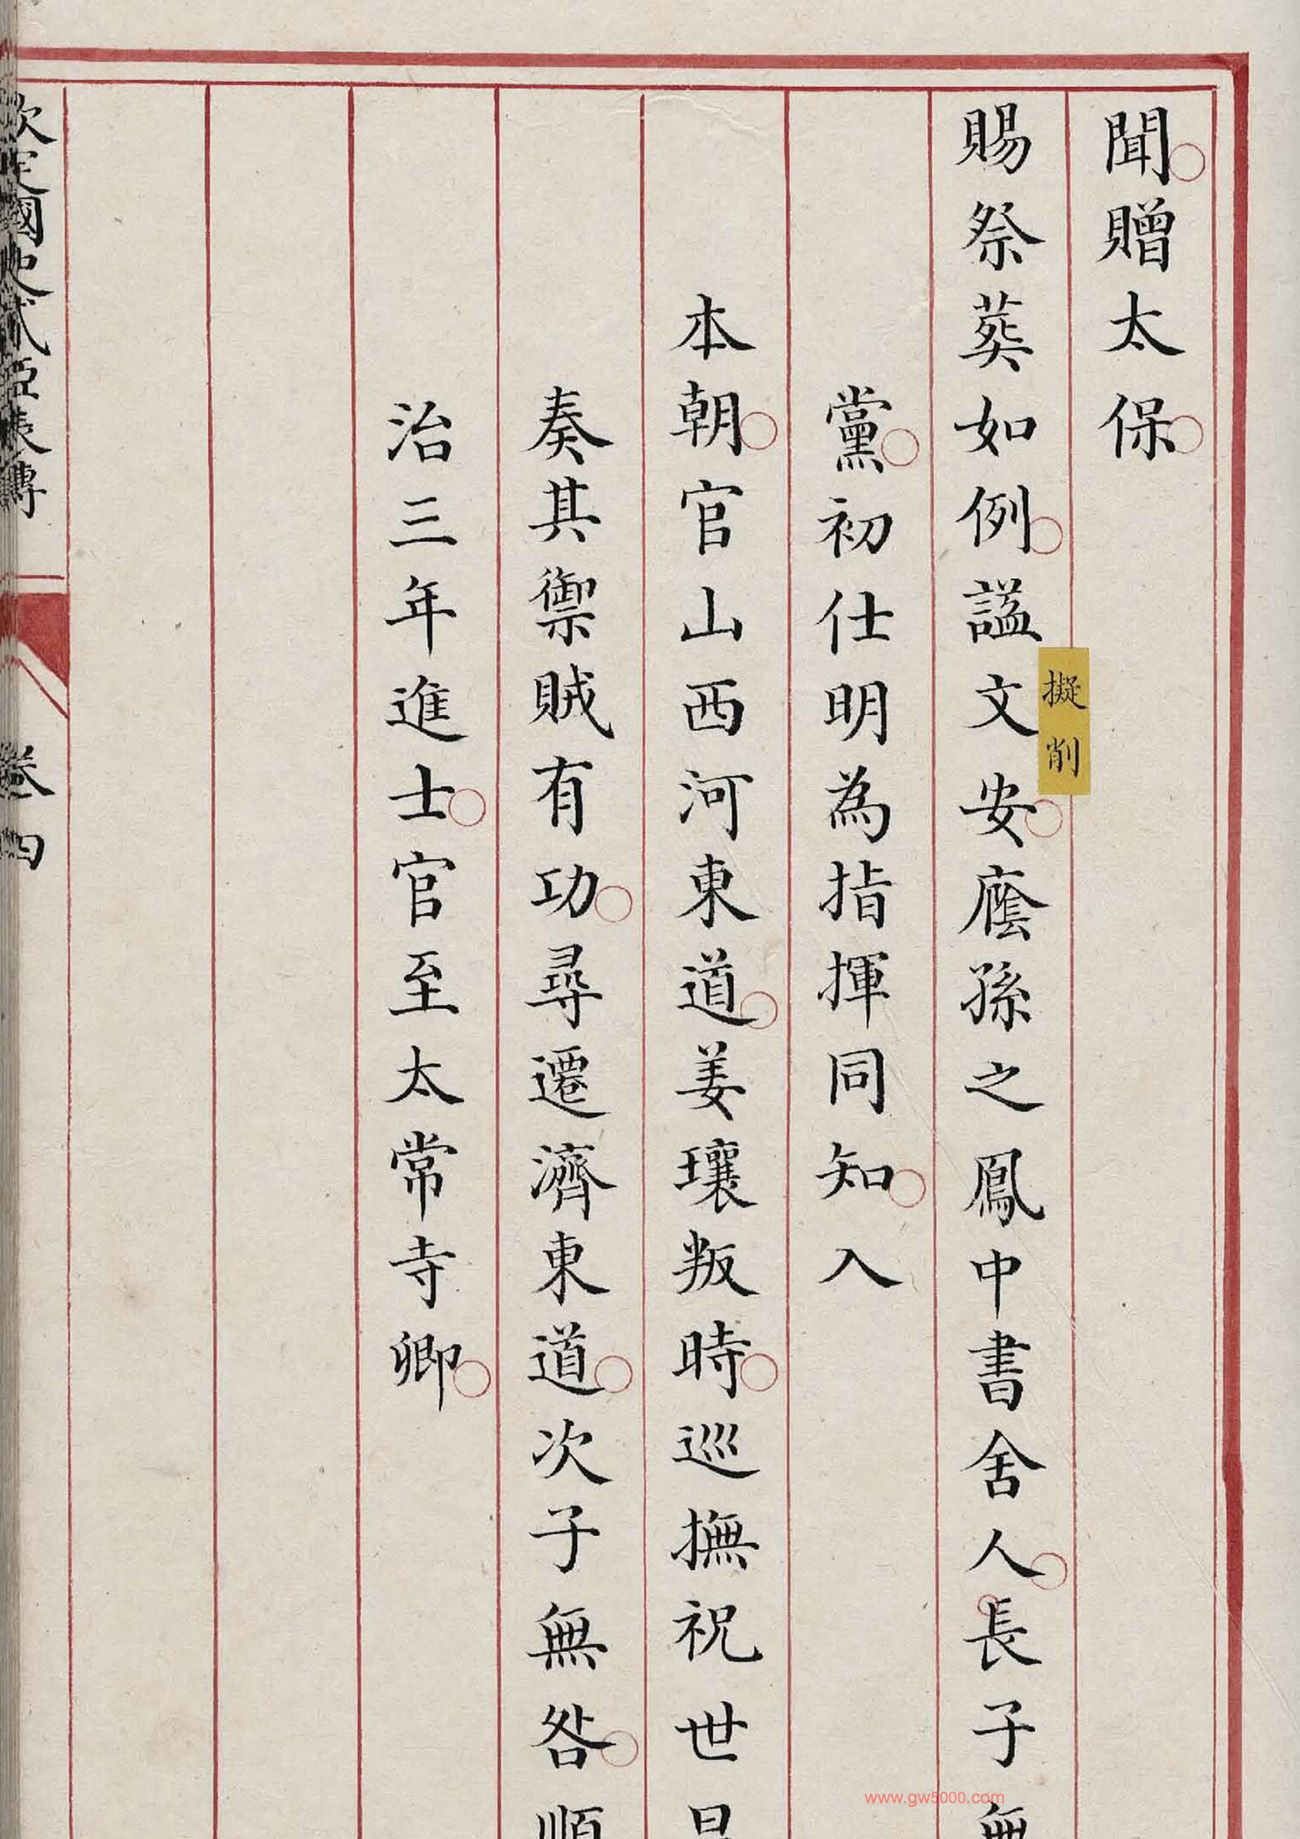 聞贈太保
賜祭葬如例諡文安廕孫之鳳中書舍人長子無
擬削
黨初仕明為指揮同知入
本朝官山西河東道姜瓖叛時巡撫祝世昌
奏其禦賊有功尋遷濟東道次子無咎順
治三年進士官至太常寺卿
欽定國史貳臣表傳
卷四
www.gw5000.com